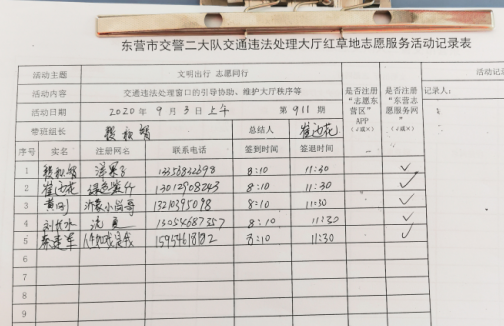 东营市交警二大队交通违法处理大厅红草地志愿服务活动记录表
活动主题 文明出行 志愿同行
活动内容 交通违法处理窗口的引导协助、维护大厅秩序等
活动日期 2020年9月3日上午 第911期
带班组长 总结人 崔迎花
是否注册“志愿东营区”APP（√或×）
是否注册“东营志愿服务网”（√或×）
活动记
记录人：
序号 实名 注册网名 联系电话 签到时间 签退时间
1 13356832698 8:10 11:30 √
2 崔迎花 绿色出行 13012508243 8:10 11:30 √
3 黄明 沂蒙小尚哥 13210395098 8:10 11:30 √
4 刘长水 13054687357 8:10 11:30 √
5 秦建军 15954618182 8:10 11:30 √
6
7
8
9